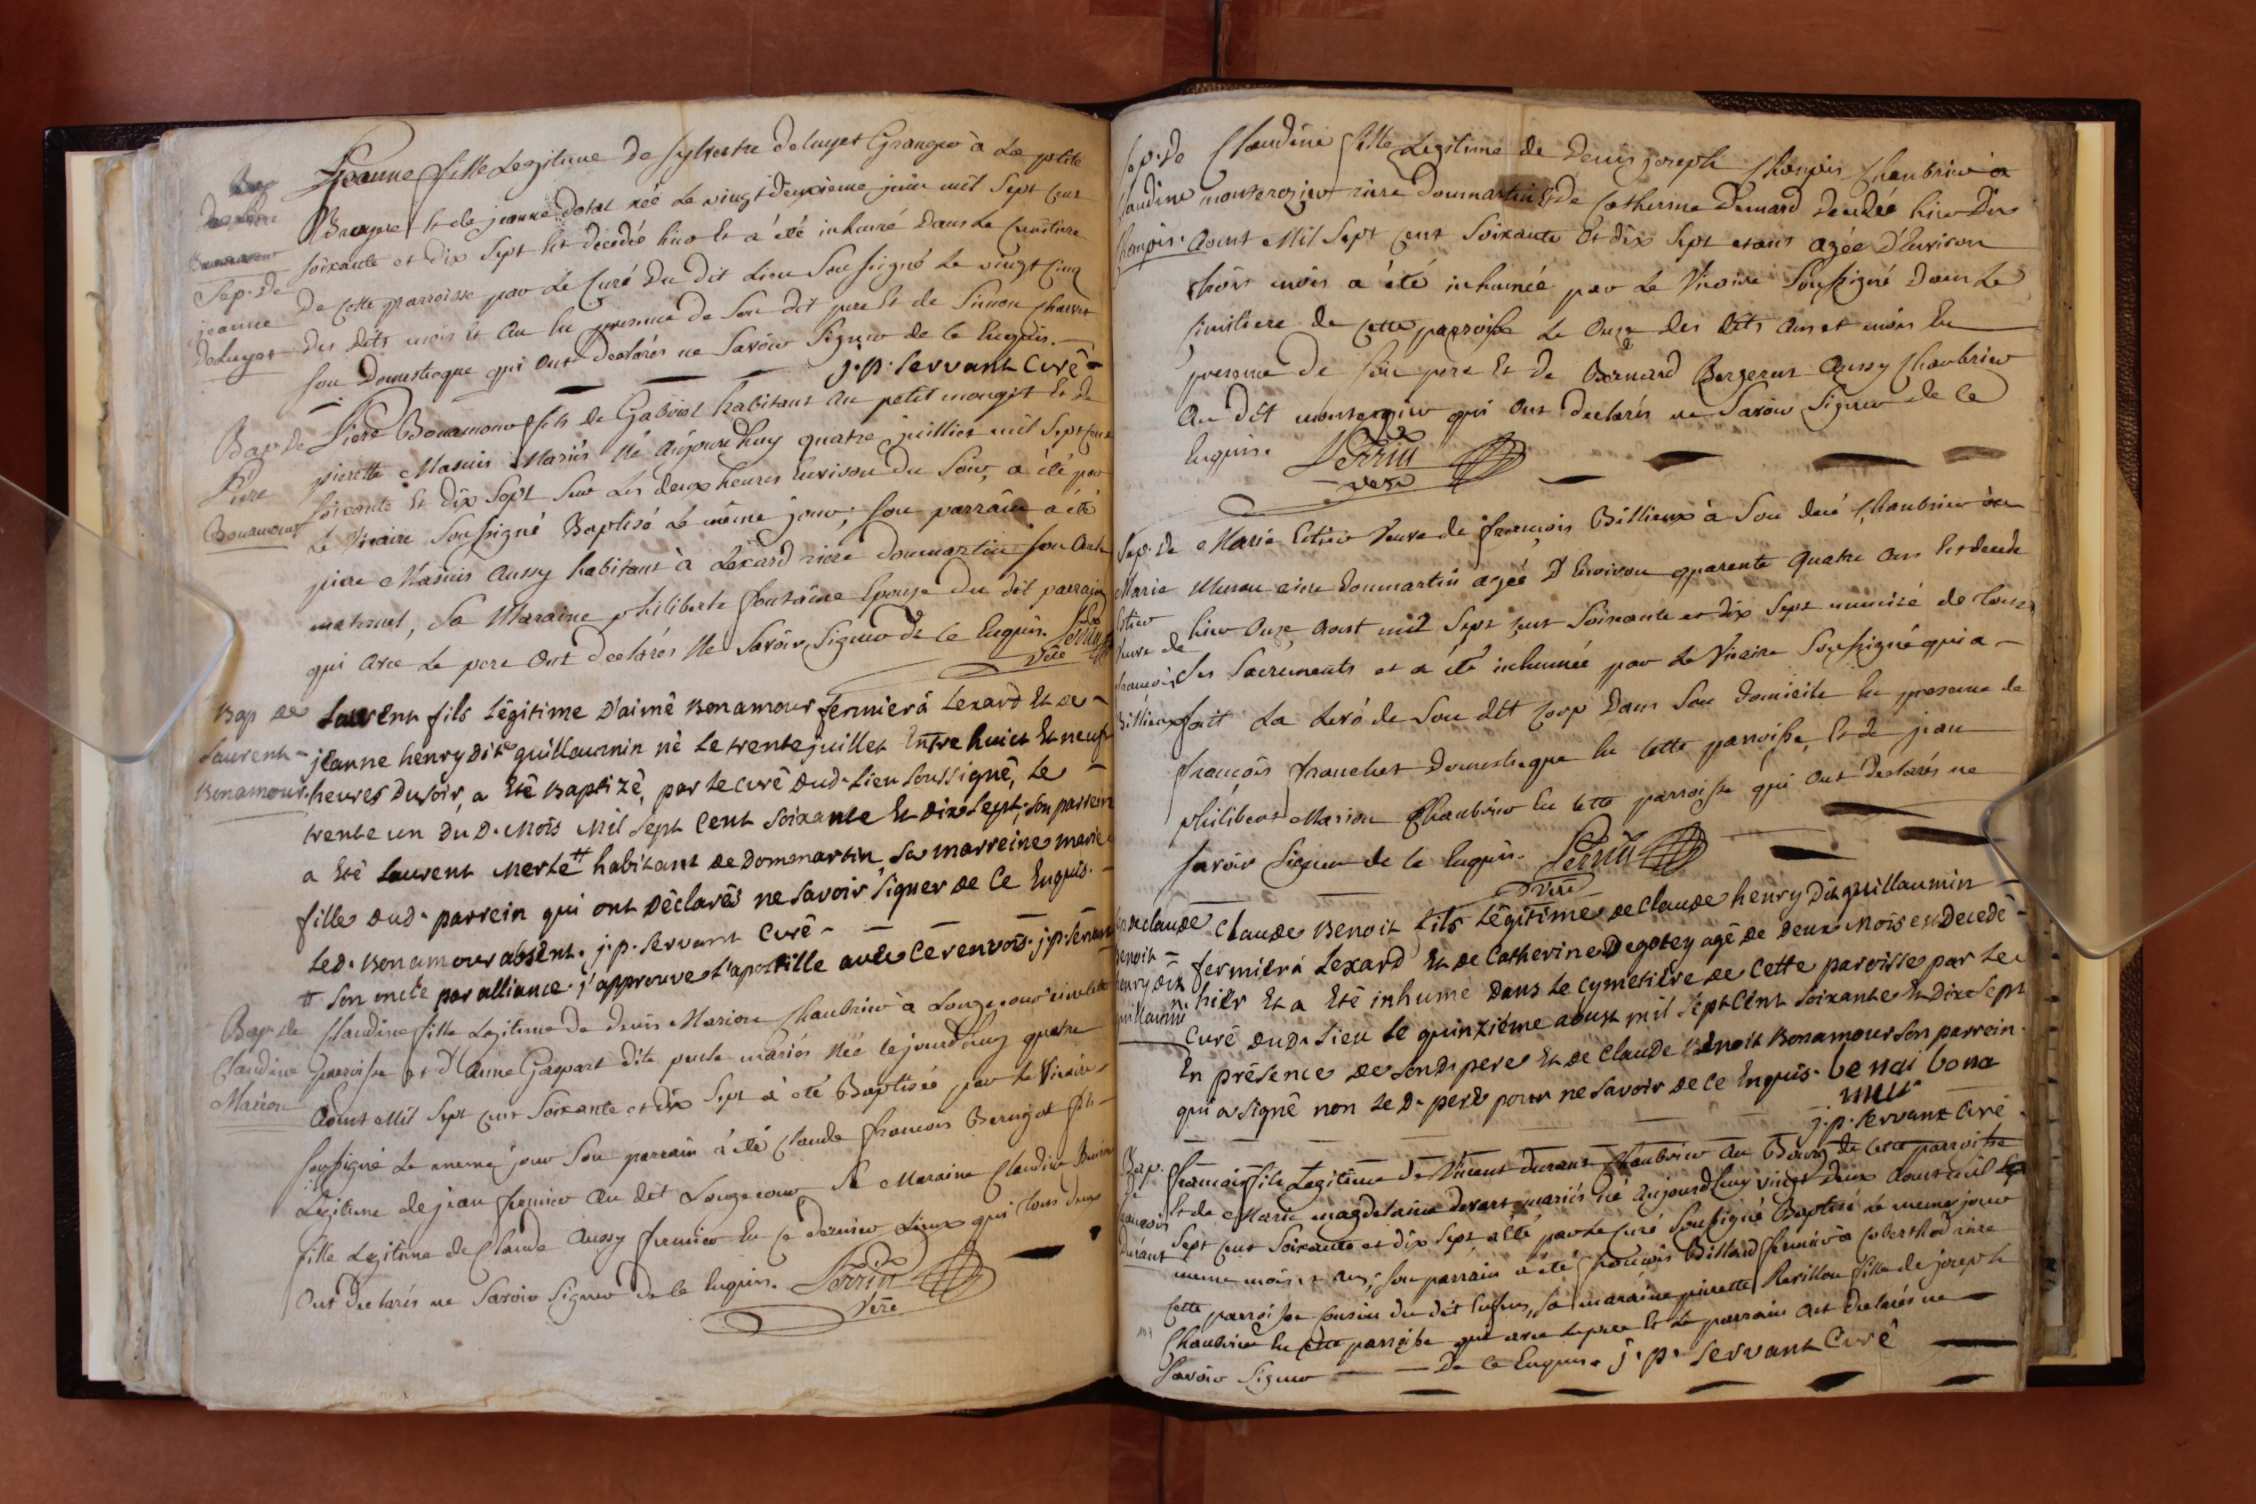 Sep. de
jeanne
Deluyer
Jeanne fille Legitime de Sylvestre Deluyer Granger à La petite
Et de jeanne née Le vingt deuxieme juin mil Sept cent
soixante et dix Sept Est décédée hier Et à été inhumé Dans Le Cimitiere
de Cette parroisse par Le Curé Du Dit Lieu Soussigné Le vingt Cinq
des Dits mois et An En presence de Son Dit pere Et de Simon
Son Domestique qui Ont Declarés ne Savoir Signer de Ce Enquis.
j. p. servant Curé
Bap. de
Piere
Bonamour
Piere Bonamour fils de Gabriel habitant Au petit mongit Et de
pierette Masuis Mariés Né Aujourdhuy quatre juillier mil Sept Cent
soixante Et Dix Sept Sur Les deux heures Environ Du Soir, a été par
Le Vicaire Soussigné Baptisé Le même jour; Son parrain a été
piere Masuis Aussy habitant à Lexard riere Dommartin Son Oncle
maternel, Sa Maraine philiberte fontaine Epouse du dit parrain
qui Avec Le pere Ont Declarés Ne Savoir Signer de Ce Enquis. Perrin
Vire
Bap de
Laurent
Bonamour.
Laurent fils Légitime D'aimé Bonamour fermier á Lexard Et de
jeanne henry Dite guillaumin né Le trente juillet Entre huict Et neuf
heures Du soir, a Eté Baptizé, par Le curé Dud. Lieu soussigné, Le
trente un Du D. Mois Mil sept Cent soixante Et Dix sept; son parrein
a Eté Laurent Merle # habitant de Dommartin sa marreine marie
fille Dud. parrein qui ont Déclarés ne savoir signer de Ce Enquis.
Led. Bonamour absent. j. p. servant Curé
# son oncle par alliance. j'approuve L'apostille avec Ce renvois. j. p. servant
Bap. de
Claudine
Marion
Claudine fille Legitime de denis Marion Chanbrier à Longecour riere Cette
parroisse et d'Anne Gaspart dite mariés Née Cejourdhuy quatre
Aoust Mil Sept Cent Soixante et dix Sept à été Baptisée par Le Vicaire
soussigné Le meme jour Son parrain à été Claude francois fils
Legitime de jean fermier Au dit Longecour Sa Maraine Claudine
fille Legitime de Claude Aussy fermier En Ce dernier Lieux qui tous deux
Ont Declarés ne Savoir Signer de Ce Enquis. Perrin
Vire
Sep. de
Claudine
Claudine fille Legitime de Denis joseph Chanbrier à
riere Dommartin Et de Catherine Decedée hier Dix
Aoust Mil Sept Cent Soixante Et dix Sept etant agée D'Environ
trois mois a été inhumée par Le Vicaire Soussigné Dans Le
Cimitiere de Cette parroisse Le Onze des Dits Ans et mois En
presence de Son pere Et de Bernard Bergerat Aussy Chanbrier
Au Dit qui Ont Declarés ne Savoir Signer de Ce
Enquis. Perrin
Vire
Sep. de
Marie
veuve de
francois
Billieux
Marie Veuve de francois Billieux à Son decé Chanbrier
riere Dommartin agée D'Environ quarente Quatre Ans Est decedé
hier Onze Aoust mil Sept Cent Soixante et Dix Sept munie de tous
Les Sacrements et a été inhumée par Le Vicaire Soussigné qui a
fait La Levé de Son dit Corp Dans Son domicile En presence de
françois franchet Domestique En Cette parroisse, Et de jean
philibert Marion Chanbrier En Cette parroisse qui Ont Declarés ne
Savoir Signer de Ce Enquis. Perrin
Vire
de claude
Benoit
henry dit
guillaumin
Claude Benoit fils Légitime de Claude henry Dit guillaumin
fermier á Lexard Et de Catherine Degotey agé de Deux Mois est Decedé
hier Et a Eté inhumé Dans Le Cymetiére de Cette paroisse par Le
Curé Dud. Lieu Le quinziéme aoust Mil sept Cent soixante Et Dix sept
En présence de son d. pere Et de Claude Benoit Bonamour son parrein
qui a signé non Le D. pere pour ne savoir de Ce Enquis. benoi bona
mur
j. p. servant Curé
Bap.
de
francois
durant
francois fils Legitime de Vincent durant Chanbrier Au Bourg de Cette parroisse
Et de Marie magdelaine mariés né Aujourdhuy vingt Deux Aoust mil
Sept Cent Soixante et dix Sept a été par Le Curé Soussigné Baptisé Le meme jour
meme mois et An; Son parrain a été francois Billard fermier à Coberthod riere
Cette parroisse Cousin du dit Enfan, Sa maraine pierette Revillon fille de joseph
Chanbrier En Cette parroisse qui avec Le pere Et Le parrain Ont Declarés ne
Savoir Signer De Ce Enquis. j. p. servant Curé